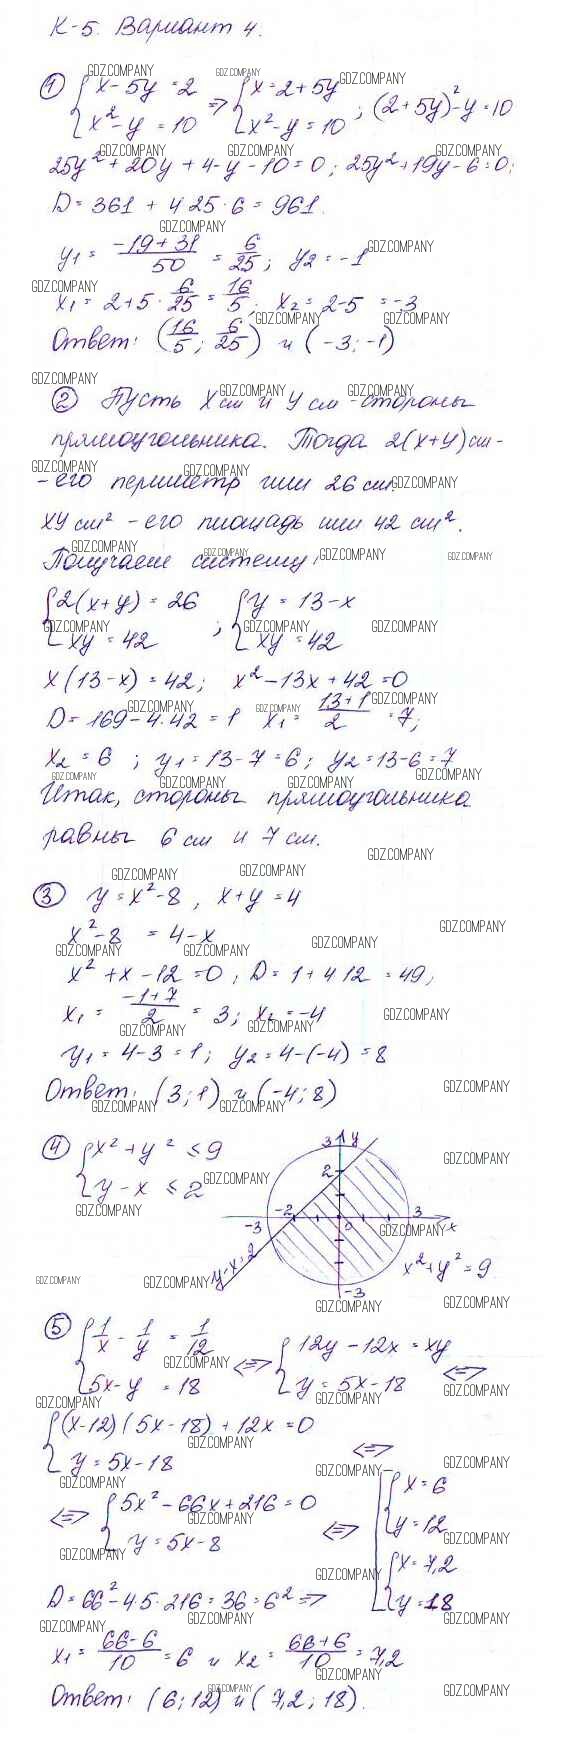 К-5. Вариант 4.
① { x - 5y = 2 ; x² - y = 10 ⇒ { x = 2 + 5y ; x² - y = 10 ; (2+5y)² - y = 10
25y² + 20y + 4 - y - 10 = 0 ; 25y² + 19y - 6 = 0;
D = 361 + 4·25·6 = 961.
y₁ = (-19+31)/50 = 6/25 ; y₂ = -1
x₁ = 2 + 5·6/25 = 16/5 ; x₂ = 2-5 = -3
Ответ: (16/5 ; 6/25) и (-3; -1)
② Пусть x см и y см - стороны
прямоугольника. Тогда 2(x+y) см -
- его периметр или 26 см.
xy см² - его площадь или 42 см².
Получаем систему:
{ 2(x+y) = 26 ; xy = 42 ; { y = 13-x ; xy = 42
x(13-x) = 42; x² - 13x + 42 = 0
D = 169 - 4·42 = 1 x₁ = (13+1)/2 = 7;
x₂ = 6 ; y₁ = 13-7 = 6; y₂ = 13-6 = 7
Итак, стороны прямоугольника
равны 6 см и 7 см.
③ y = x² - 8 , x + y = 4
x² - 8 = 4 - x
x² + x - 12 = 0 ; D = 1 + 4·12 = 49;
x₁ = (-1+7)/2 = 3; x₂ = -4
y₁ = 4-3 = 1; y₂ = 4-(-4) = 8
Ответ: (3; 1) и (-4; 8)
④ { x² + y² ≤ 9 ; y - x ≤ 2
3 y
2
-3 -2 0 3 x
y-x=2
x² + y² = 9
-3
⑤ { 1/x - 1/y = 1/12 ; 5x - y = 18 ⇔ { 12y - 12x = xy ; y = 5x - 18 ⇔
{ (x-12)(5x-18) + 12x = 0 ; y = 5x - 18 ⇔
⇔ { 5x² - 66x + 216 = 0 ; y = 5x - 8 ⇔ [ { x = 6 ; y = 12 { x = 7,2 ; y = 18
D = 66² - 4·5·216 = 36 = 6² ⇒
x₁ = (66-6)/10 = 6 и x₂ = (66+6)/10 = 7,2
Ответ: (6; 12) и (7,2 ; 18).
GDZ.COMPANY